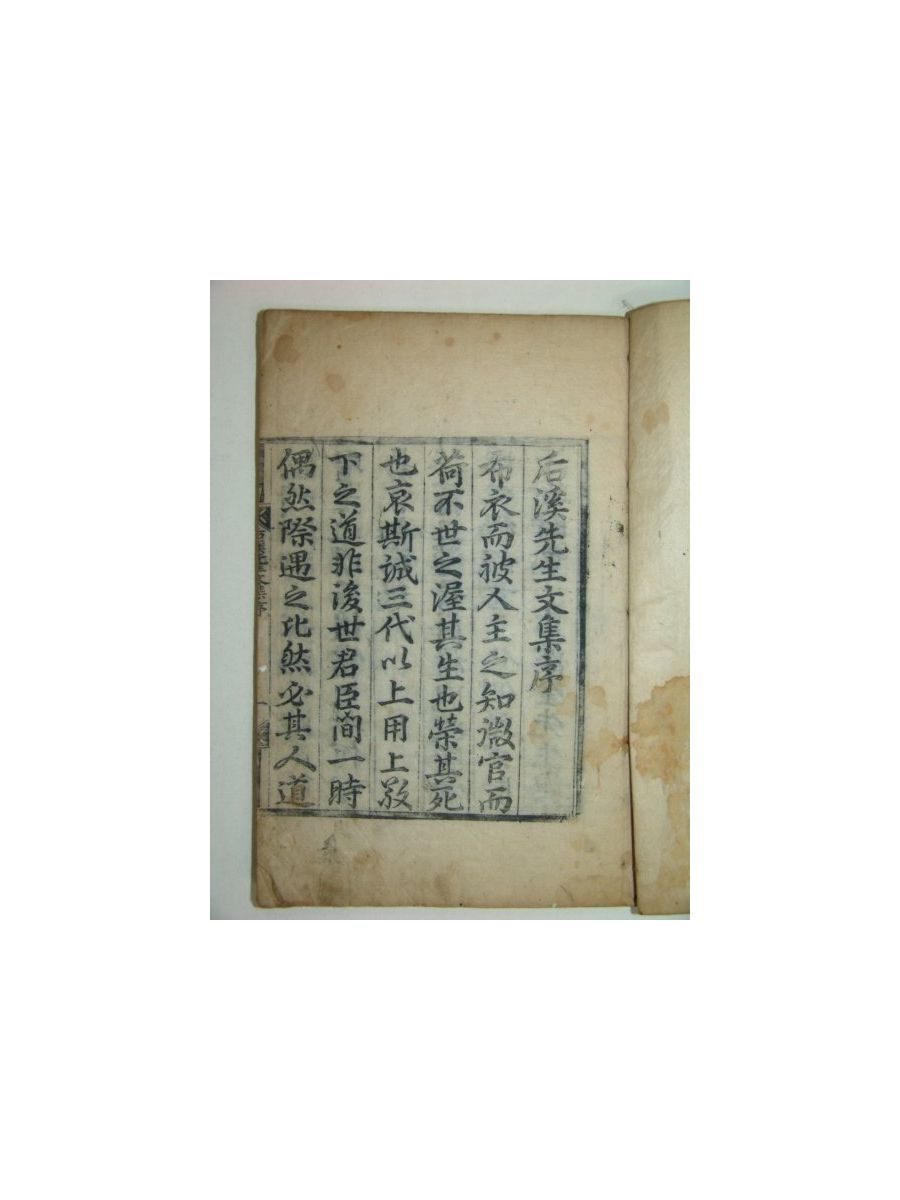 后溪先生文集序
布衣而被人主之知微官而
荷不世之渥其生也榮其死
也哀斯誠三代以上用上敬
下之道非後世君臣間一時
偶然際遇之比然必其人道